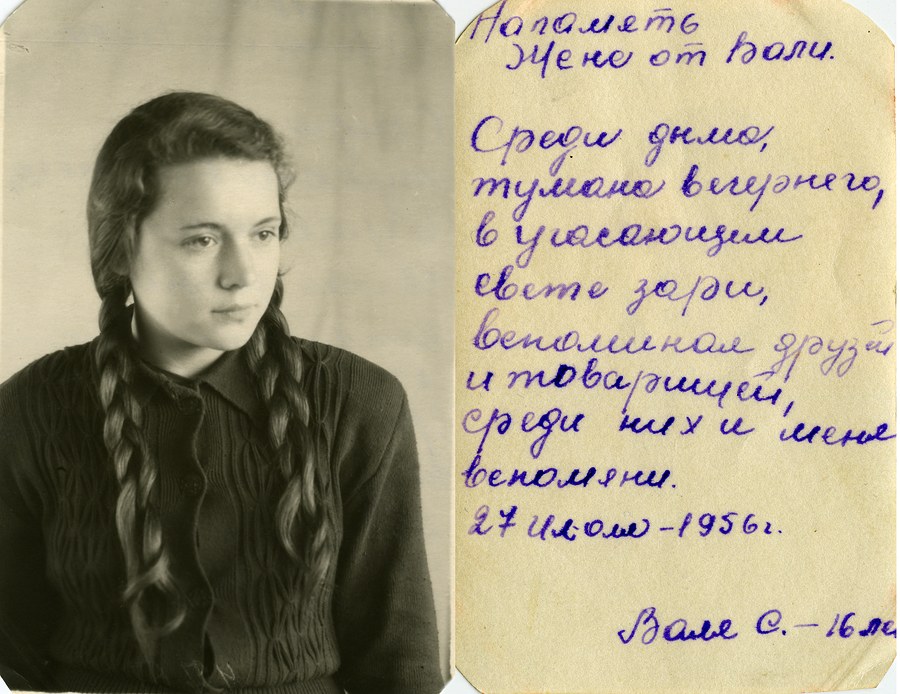 На память
Жене от Вали.
Среди дыма,
тумана вечернего,
в угасающем
свете зари,
вспоминая друзей
и товарищей,
среди них и меня
вспомяни.
27 Июля - 1956 г.
Валя С. - 16 ле